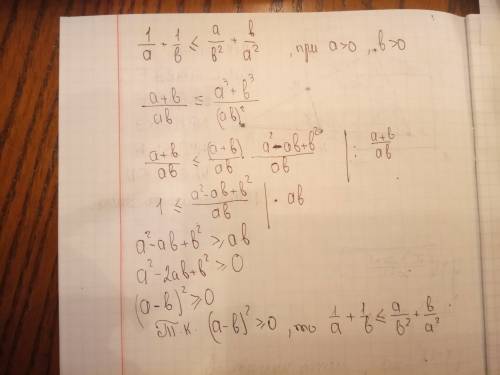 1/a + 1/b ≤ a/b² + b/a² , при a>0, b>0
(a+b)/ab ≤ (a³+b³)/(ab)²
(a+b)/ab ≤ (a+b)/ab · (a²-ab+b²)/ab | : (a+b)/ab
1 ≤ (a²-ab+b²)/ab | · ab
a²-ab+b² ≥ ab
a²-2ab+b² ≥ 0
(a-b)² ≥ 0
Т.к. (a-b)² ≥ 0, то 1/a + 1/b ≤ a/b² + b/a²